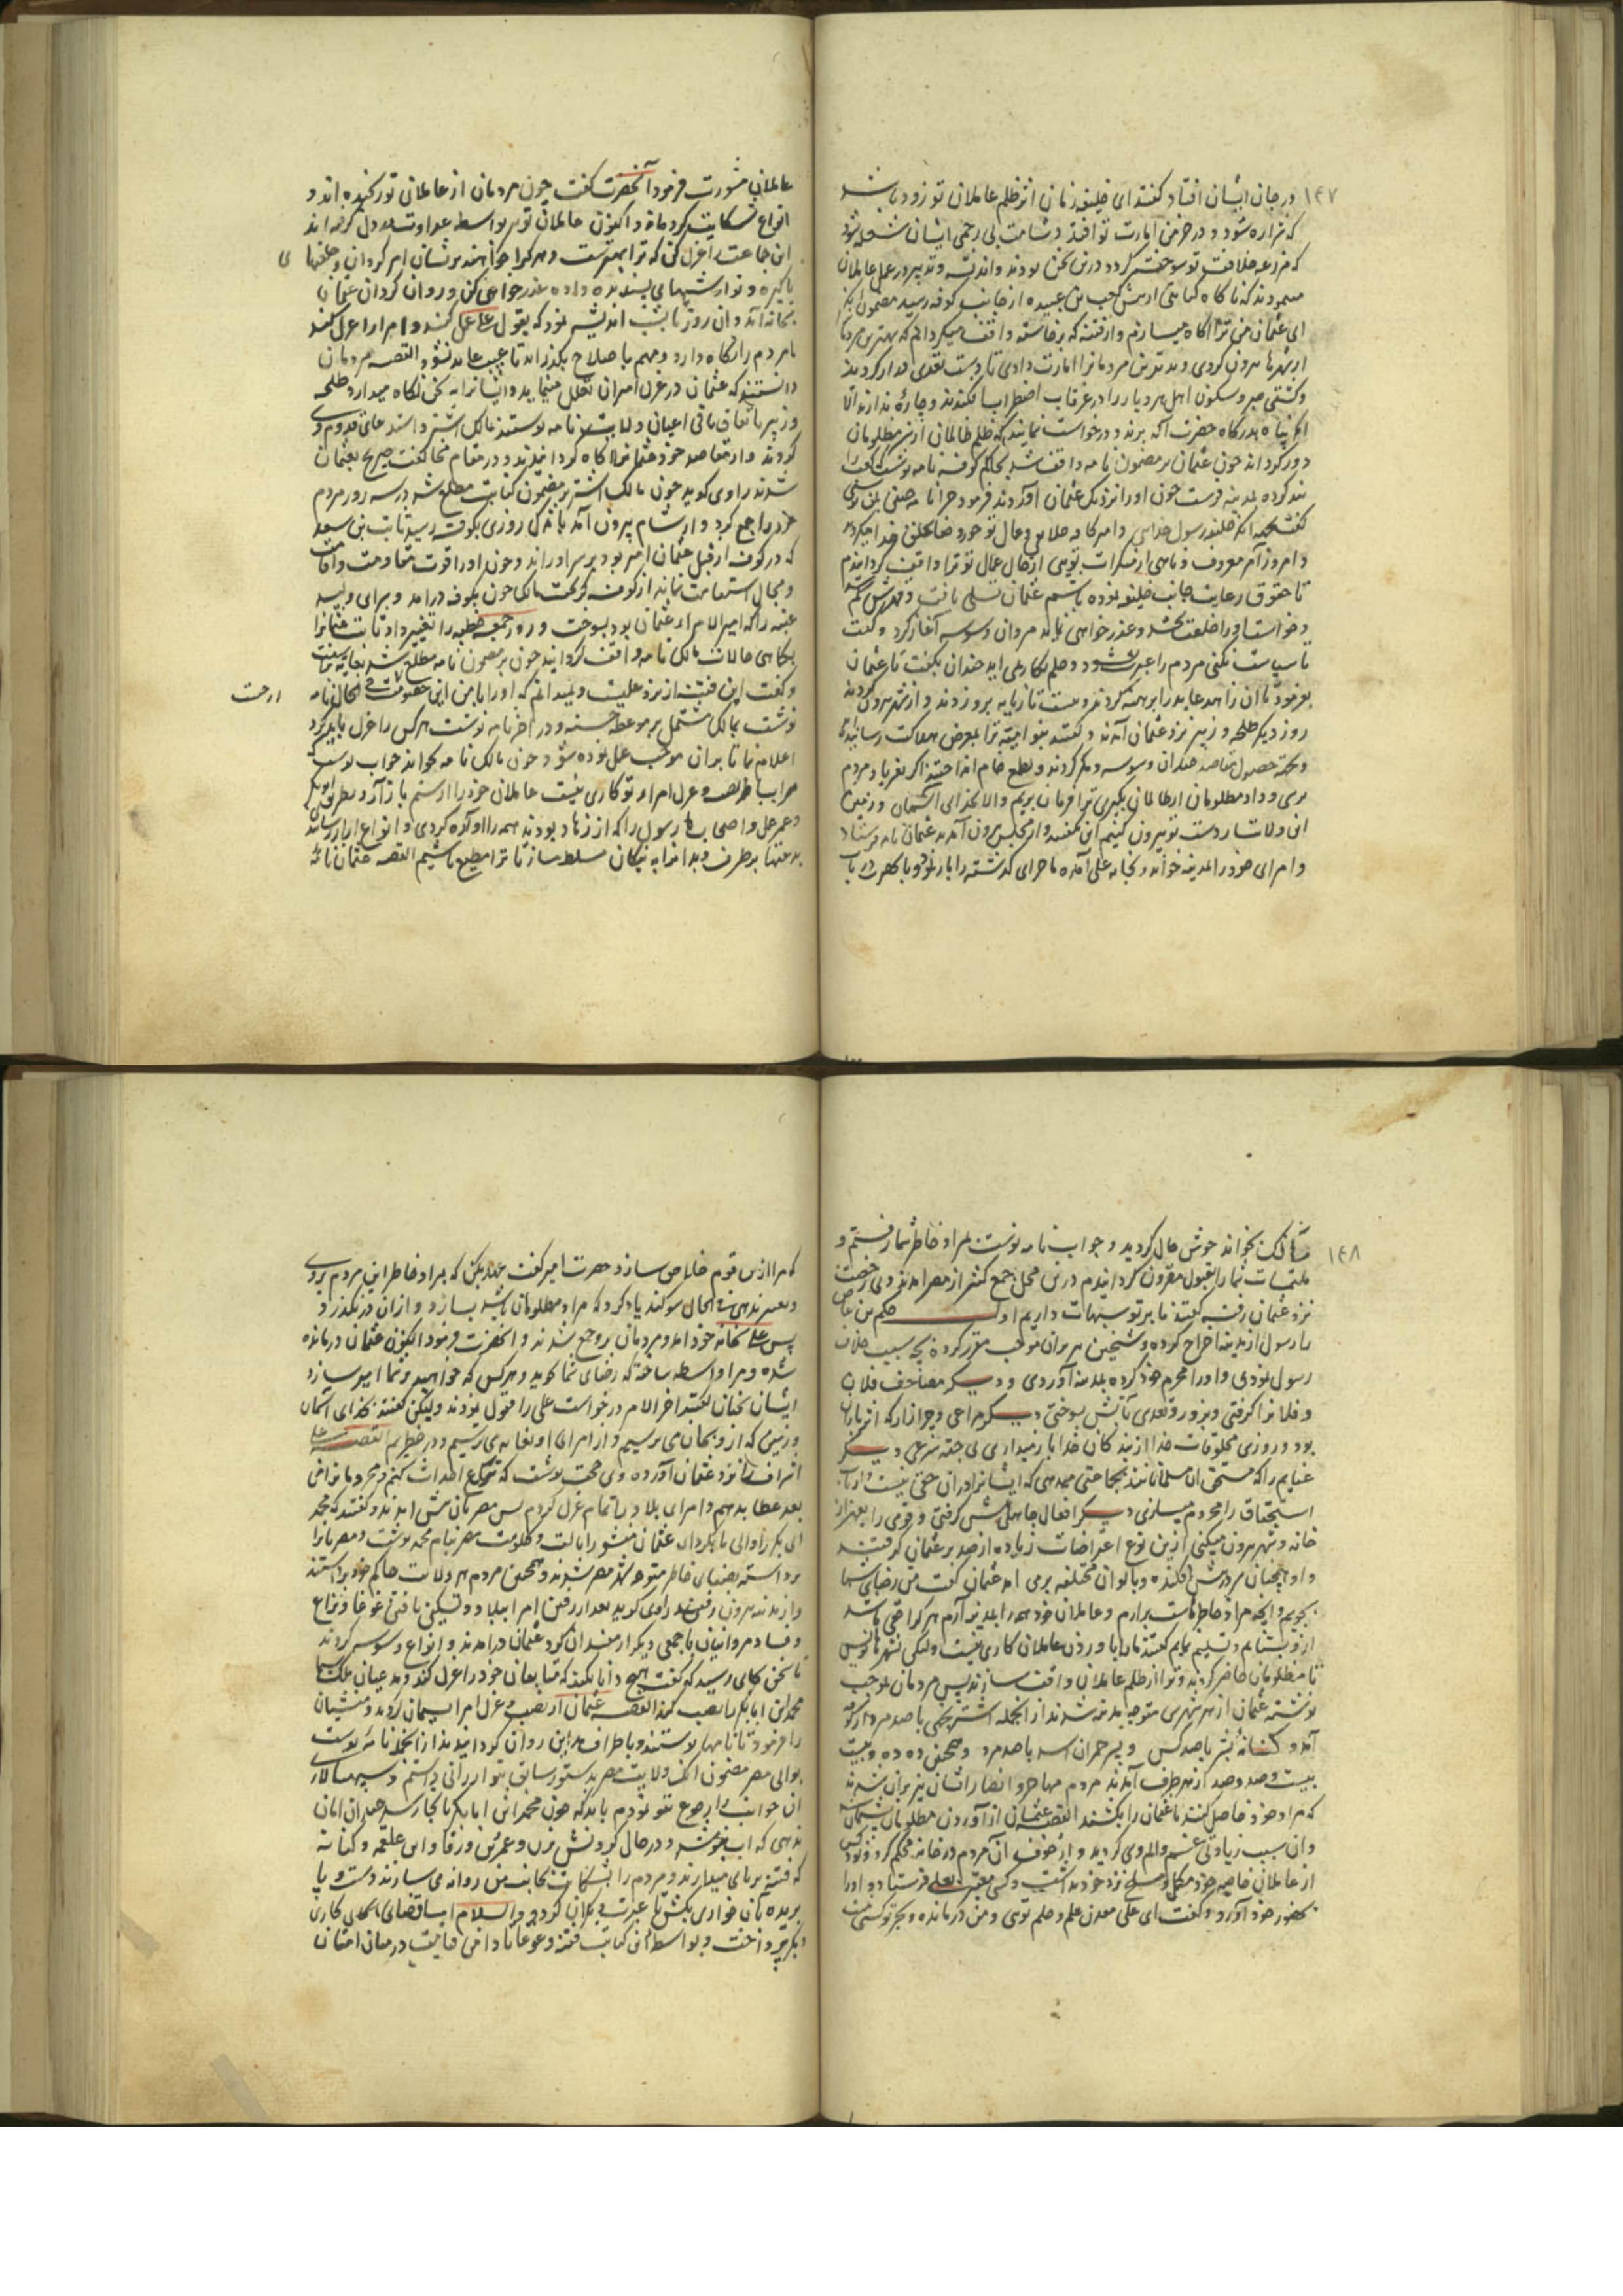 ١٤٧
در جان ایشان افتاد کفتند ای خلیفه زمان اثر ظلم عاملان تو زود باشد
که شراره شود و در خرمن امارت تو افتد و شامت بی رحمی ایشان شعله شود
که مزرعه خلافت تو سوخته کردد درین سخن بودند و اندیشه و تدبیر در عمل عاملان
مینمودند که ناکاه کتابتی از پیش کعب بن عبیده از جانب کوفه رسید مضمون آنکه
ای عثمان من ترا آکاه میسازم و از فتنه که برخاسته واقف میکردانم که بهترین مردمان
از شهرها بیرون کردی و بدترین مردمانرا امارت دادی تا دست تعدی دراز کردند
و کشتی صبر و سکون اهل هر دیار را در غرقاب اضطراب افکندند و چاره ندارند الا
آنکه پناه بدرکاه حضرت آله برند و درخواست نمایند که ظلم ظالمان از سر مظلومان
دور کرداند چون عثمان بر مضمون نامه واقف شد بحاکم کوفه نامه نوشت کعب را
بند کرده بمدینه فرست چون او را نزدیک عثمان آوردند فرمود چرا نامه چنین بمن نوشتی
کفت
و امروز آمر معروف و ناهی از منکرات تویی از حال عمال تو ترا واقف کردانیدم
تا حقوق رعایت جانب خلیفه بوده باشم عثمان تسلی یافت و قهرش کم شد
و خواست او را خلعت بخشد و عذر خواهی نماید مروان وسوسه آغاز کرد و کفت
تا سیاست نکنی مردم را عبرت نشود و حلم بکار نمی اید چندان بکفت تا عثمان
بفرمود تا ان زاهد عابد را برهنه کردند و بیست تازیانه برو زدند و از شهر بیرون کردند
روز دیکر طلحه و زبیر نزد عثمان آمدند و کفتند بنو امیه ترا بمعرض هلاکت رسانیدند
و بجهة حصول مقاصد چندان وسوسه و مکر کردند و بطمع خام انداختند اکر بفریاد مردم
برسی و داد مظلومان از ظالمان بکیری ترا فرمان بریم والا بخدای آسمان و زمین
ان ولات را از دست تو بیرون کنیم این بکفتند و از مجلس بیرون آمدند عثمان نامه فرستاد
و امرای خود را بمدینه خواند و بخانه علی آمده ماجرای کذشته را باز نمود و با آنحضرت در باب
عاملان مشورت فرمود آنحضرت کفت چون مردمان از عاملان تو رنجیده اند و
انواع شکایت کرده اند و اکنون عاملان تو بواسطه عداوت بد دل کرفته اند
این جماعت را عزل کن که ترا بهترست و هر کرا خواهند بریشان امیر کردان و خلعتها
پاکیزه و نوازشهای پسندیده داده عذر خواهی کن و روان کردان عثمان
بخانه آمد و ان روز تا بشب اندیشه نمود که بقول علی عمل کند و امرا را عزل کند
یا مردم را نکاه دارد و مهم باصلاح بکذراند تا عیب عاید نشود القصه مردمان
دانستند که عثمان در عزل امیران تعلل مینماید و ایشانرا به سخن نکاه میدارد طلحه
و زبیر باتفاق باقی اعیان ولایت نامه نوشتند مالک اشتر و استدعای قدوم وی
کردند و از مقاصد خود عثمانرا آکاه کردانیدند و در مقام مخالفت صریح بعثمان
شدند راوی کوید چون مالک اشتر بر مضمون کتابت مطلع شد در سه روز مردم
خود را جمع کرد و از شام بیرون آمد باندک روزی بکوفه رسید ثابت بن سعید
که در کوفه از قبل عثمان امیر بود بر سر او راند و چون او را قوت مقاومت و اقامت
و مجال استقامت نماند از کوفه بکریخت مالک چون بکوفه درامد و سرای ولید
عقبه را که امیر الامراء عثمان بود بسوخت و روز جمعه خطبه را تغییر داد ثابت عثمانرا
بکماهی حالات مالک نامه واقف کردانید چون بر مضمون نامه مطلع شد بغایت برآشفت
و کفت این فتنه از نزد علیست و نمیدانم که او را با من این خصومت فی الحال نامه
نوشت بمالک مشتمل بر موعظه حسنه و در اخر نامه نوشت هر کس را عزل باید کرد
اعلام نما تا بران موجب عمل نموده شود چون مالک نامه بخواند جواب نوشت
بغیر عزل امراء تو کاری نیست عاملان خود را از ستم باز آر و بطریق ابو بکر
و عمر عمل و اصحاب رسول را که از نزد بودند همه را آواره کردی و انواع ازار رسانیدند
بدعتها برطرف و بدانرا به نیکان مسلط مساز تا ترا مطیع باشیم القصه عثمان نامه
١٤٨
مالک بخواند خوش حال کردید و جواب نامه نوشت بمراد خاطر شما رفتیم و
ملتمسات شما را بقبول مقرون کردانیدم درین محل جمع کثیر از مصر امدند و بی رخصت
نزد عثمان رفته کفتند ما بر تو شبهات داریم اول حکم بن عاص
را رسول از مدینه اخراج کرده و شیخین بر بران موجب مقرر کردند بچه سبب خلاف
رسول نمودی و او را محرم خود کرده بمدینه آوردی و دیکر مصاحف فلان
و فلانرا کرفتی و بزور و تعدی بآتش بسوختی دیکر مراعی و چرازار که اثر باران
بود و روزی مخلوقات خدا از بندکان خدا باز میداری بی جهة شرعی دیکر
غنایم را که مستحق ان مسلمانانند بجماعتی میدهی که ایشانرا در ان حقی نیست و ارباب
استحقاق را محروم میسازی دیکر افعال جاهلی پیش کرفتی و قومی را بقهر از
خانه و شهر بیرون میکنی ازین نوع اعتراضات زیاده از صد بر عثمان کرفتند
و او همچنان سر در پیش افکنده و بالوان مختلفه برمی امد عثمان کفت من رضای شما
بجویم و آنچه مراد خاطر شماست برارم و عاملان خود همه را بمدینه آرم هر کرا حقی باشد
ازو بستانم و تسلیم نمایم کفتند ما را باوردن عاملان کاری نیست ولیکن بشهرها نویس
تا مظلومان حاضر کردند و ترا از ظلم عاملان واقف سازند پس مردمان بموجب
نوشته عثمان از هر شهری متوجه مدینه شدند از انجمله اشتر نخعی با صد مرد از کوفه
آمد و کنانه بشر با صد کس و پسر حمران اسد با صد مرد و همچنین ده ده و بیست
بیست و صد و صد از هر طرف آمدند مردم مهاجر و انصار با ایشان نیز یران شدند
که مراد خود حاصل کنند یا عثمان را بکشند القصه عثمان از آوردن مظلومان پشیمان
وان سبب زیادتی غم و الم وی کردید و از خوف ان مردم در خانه محکم کرد و
از عاملان خاصه خود مکمل و مسلح نزد خود بداشت و کس معتبر بعلی فرستاد و او را
بحضور خود آورد و کفت ای علی معدن علم و حلم تویی و من در مانده و بجز تو کسی نیست
که مرا ازین قوم خلاص سازد حضرت امیر کفت عهد بکن که بمراد خاطر این مردم بروی
و تغییر ندهی فی الحال سوکند یاد کرد که مراد مظلومان بسازد و ازان در نکذرد
پس علی بخانه خود امد و مردمان برو جمع شدند و آنحضرت فرمود اکنون عثمان درمانده
شده و مرا واسطه ساخته که رضای شما کوید و هر کس که خواهید بر شما امیر سازد
ایشان سخنان کفتند اخر الامر درخواست علی را قبول نمودند ولیکن کفتند بخدای آسمان
و زمین که ازو بجان می ترسیم و از امرای او بغایه می ترسیم و در خطریم القصه علی
اشراف را نزد عثمان آورده وی حجت نوشت که ترک احداث کنم و محرومانرا من
بعد عطا بدهم و امرای بلاد را تمام عزل کردم پس مصریان پیش امدند و کفتند که محمد
ابی بکر را والی ما بکردان عثمان منشور ایالت و حکومت مصر بنام محمد نوشت و مصریانرا
برداشته بضیای خاطر متوجه شهر مصر شدند و همچنین مردم هر ولایت حاکم خود برداشتند
و از مدینه بیرون رفتند راوی کوید بعد از رفتن امرا ببلاد و تسکین یافتن غوغا و نزاع
و فساد مروانیان با جمعی دیکر از مفسدان کرد عثمان درامدند و انواع وسوسه کردند
تا سخن بجای رسید که کفت هیچ دانا نکند که متابعان خود را عزل کند و مدعیان ملک
محمد بن ابابکر را نصب کند القصه عثمان از نصب و عزل امرا پشیمان کردید و منشیان
را فرمود تا نامها نوشتند و باطراف مداین روان کردانیدند از انجمله نامه نوشت
بوالی مصر مضمون انکه ولایت مصر بدستور سابق بتو ارزانی داشتم و سپهسالاری
ان جوانب را رجوع بتو نمودم باید که چون محمد بن ابابکر با نجا رسد چندان امان
ندهی که آب بنوشد و در حال کردنش بزن و عمر بن ورقا و ابن علقمه و کنانه
که فتنه بر پای میدارند و مردم را بشکایت بجانب من روانه می سازند دست و پا
بریده بدان خواری بکش تا عبرت دیکران کردد والسلام بکاری
دیکر پرداخت و بواسطه این کتابت فتنه و غوغا تا دامن قیامت درمیان امتان